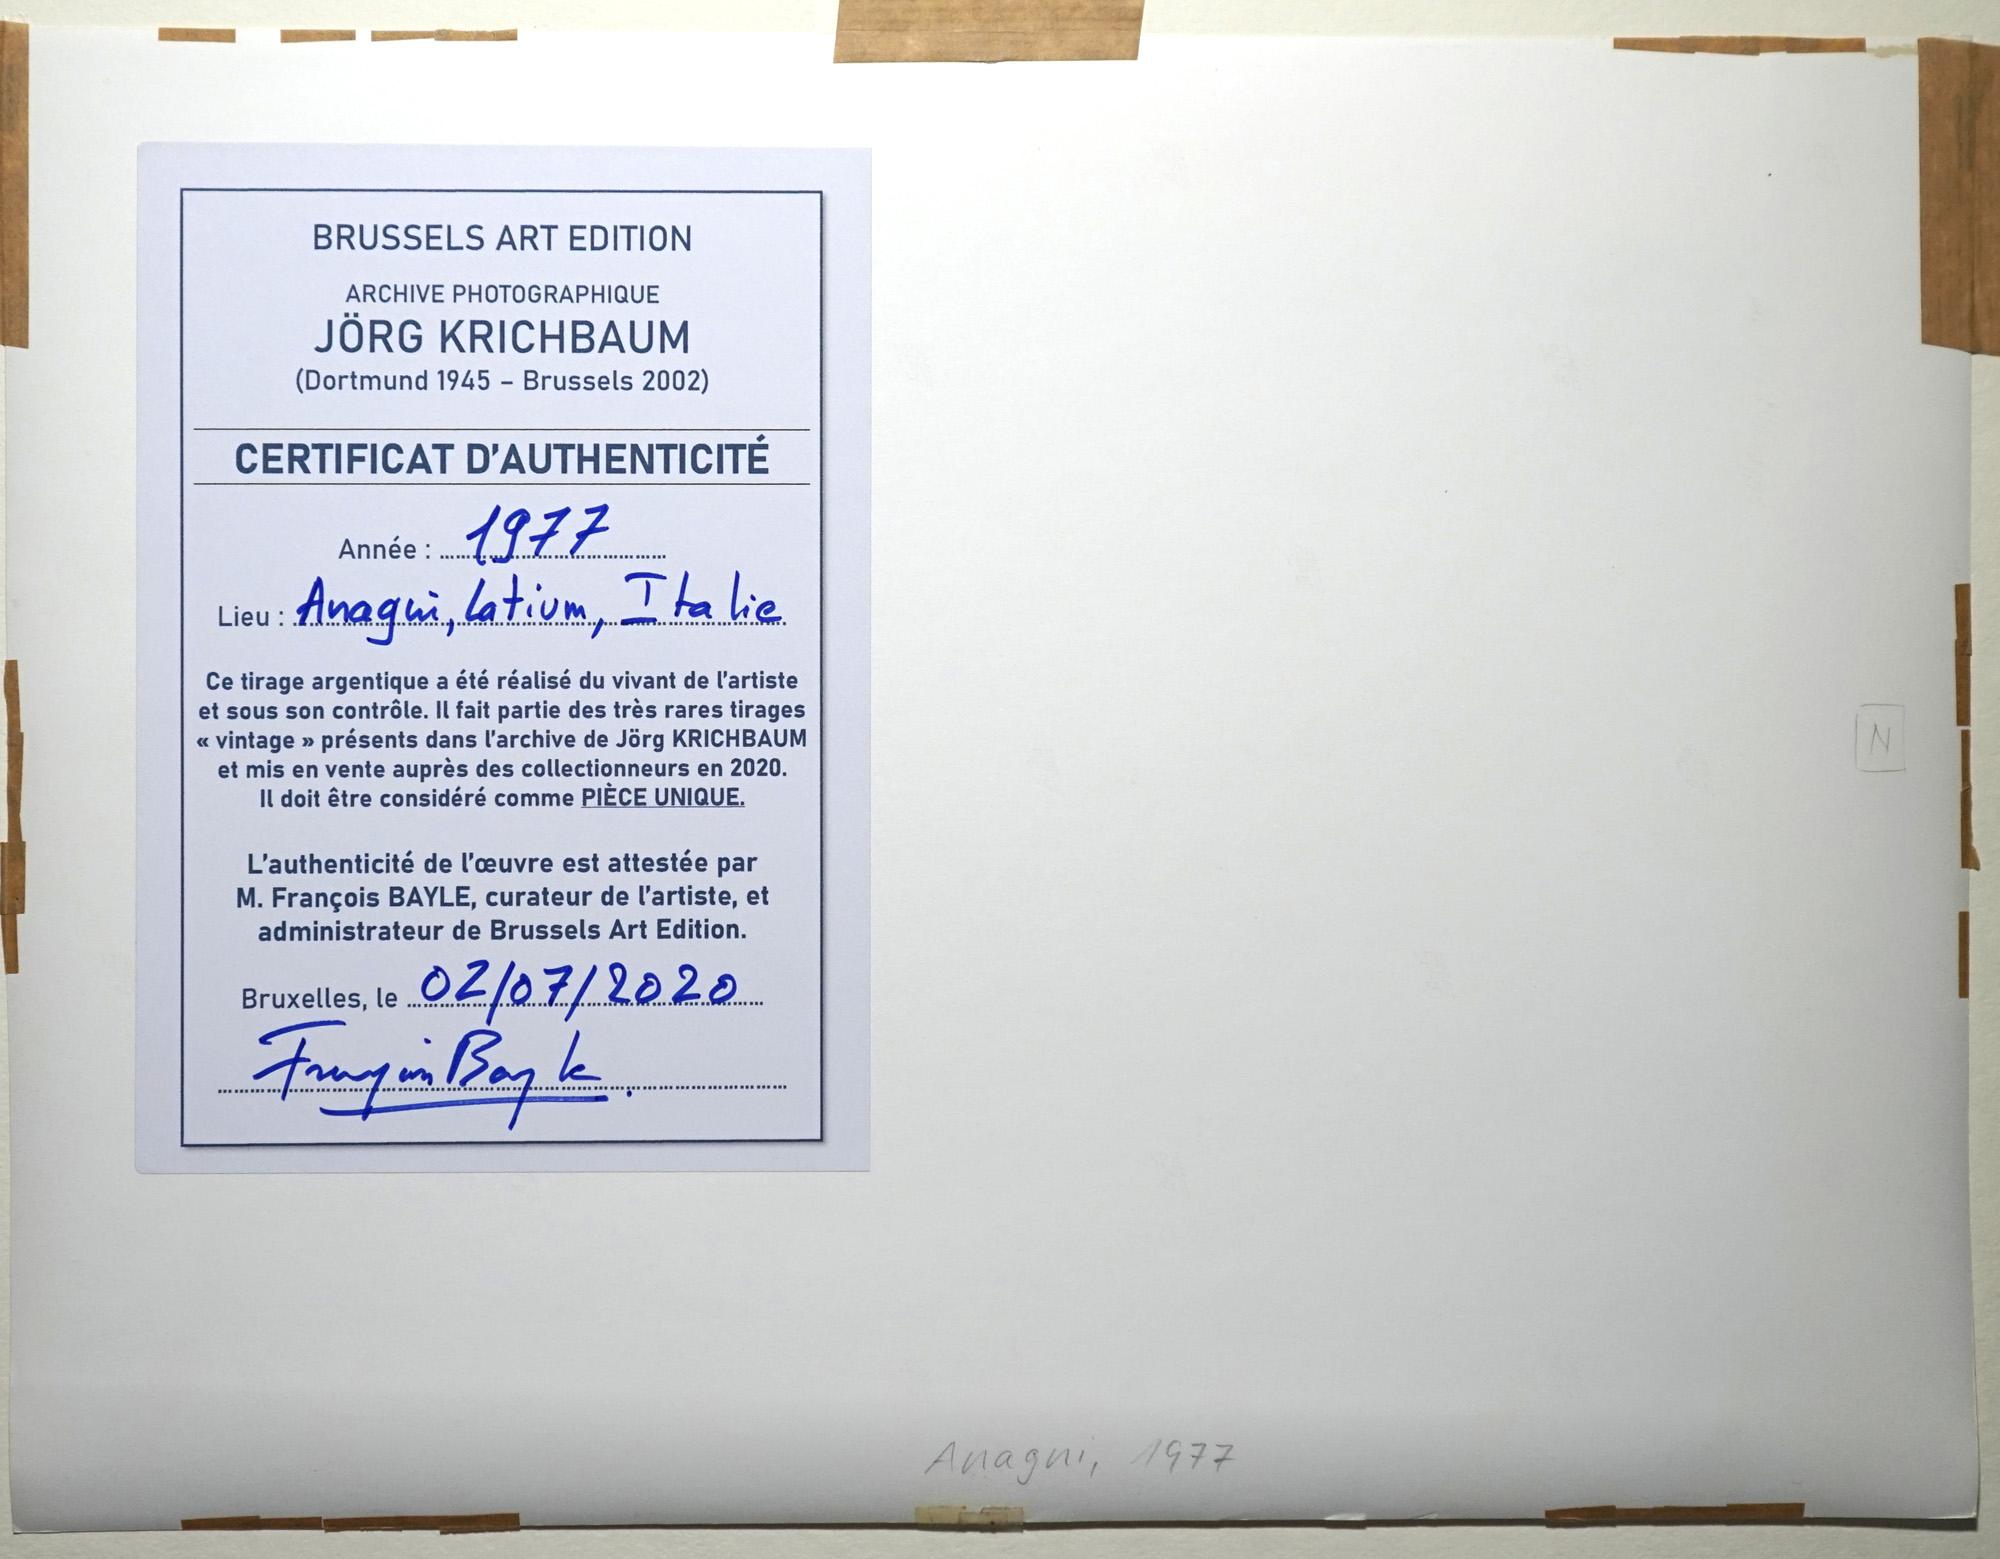 BRUSSELS ART EDITION
ARCHIVE PHOTOGRAPHIQUE
JÖRG KRICHBAUM
(Dortmund 1945 – Brussels 2002)
CERTIFICAT D'AUTHENTICITÉ
Année : 1977
Lieu : Anagni, Latium, Italie
Ce tirage argentique a été réalisé du vivant de l'artiste
et sous son contrôle. Il fait partie des très rares tirages
« vintage » présents dans l'archive de Jörg KRICHBAUM
et mis en vente auprès des collectionneurs en 2020.
Il doit être considéré comme PIÈCE UNIQUE.
L'authenticité de l'œuvre est attestée par
M. François BAYLE, curateur de l'artiste, et
administrateur de Brussels Art Edition.
Bruxelles, le 02/07/2020
François Bayle
N
Anagni, 1977